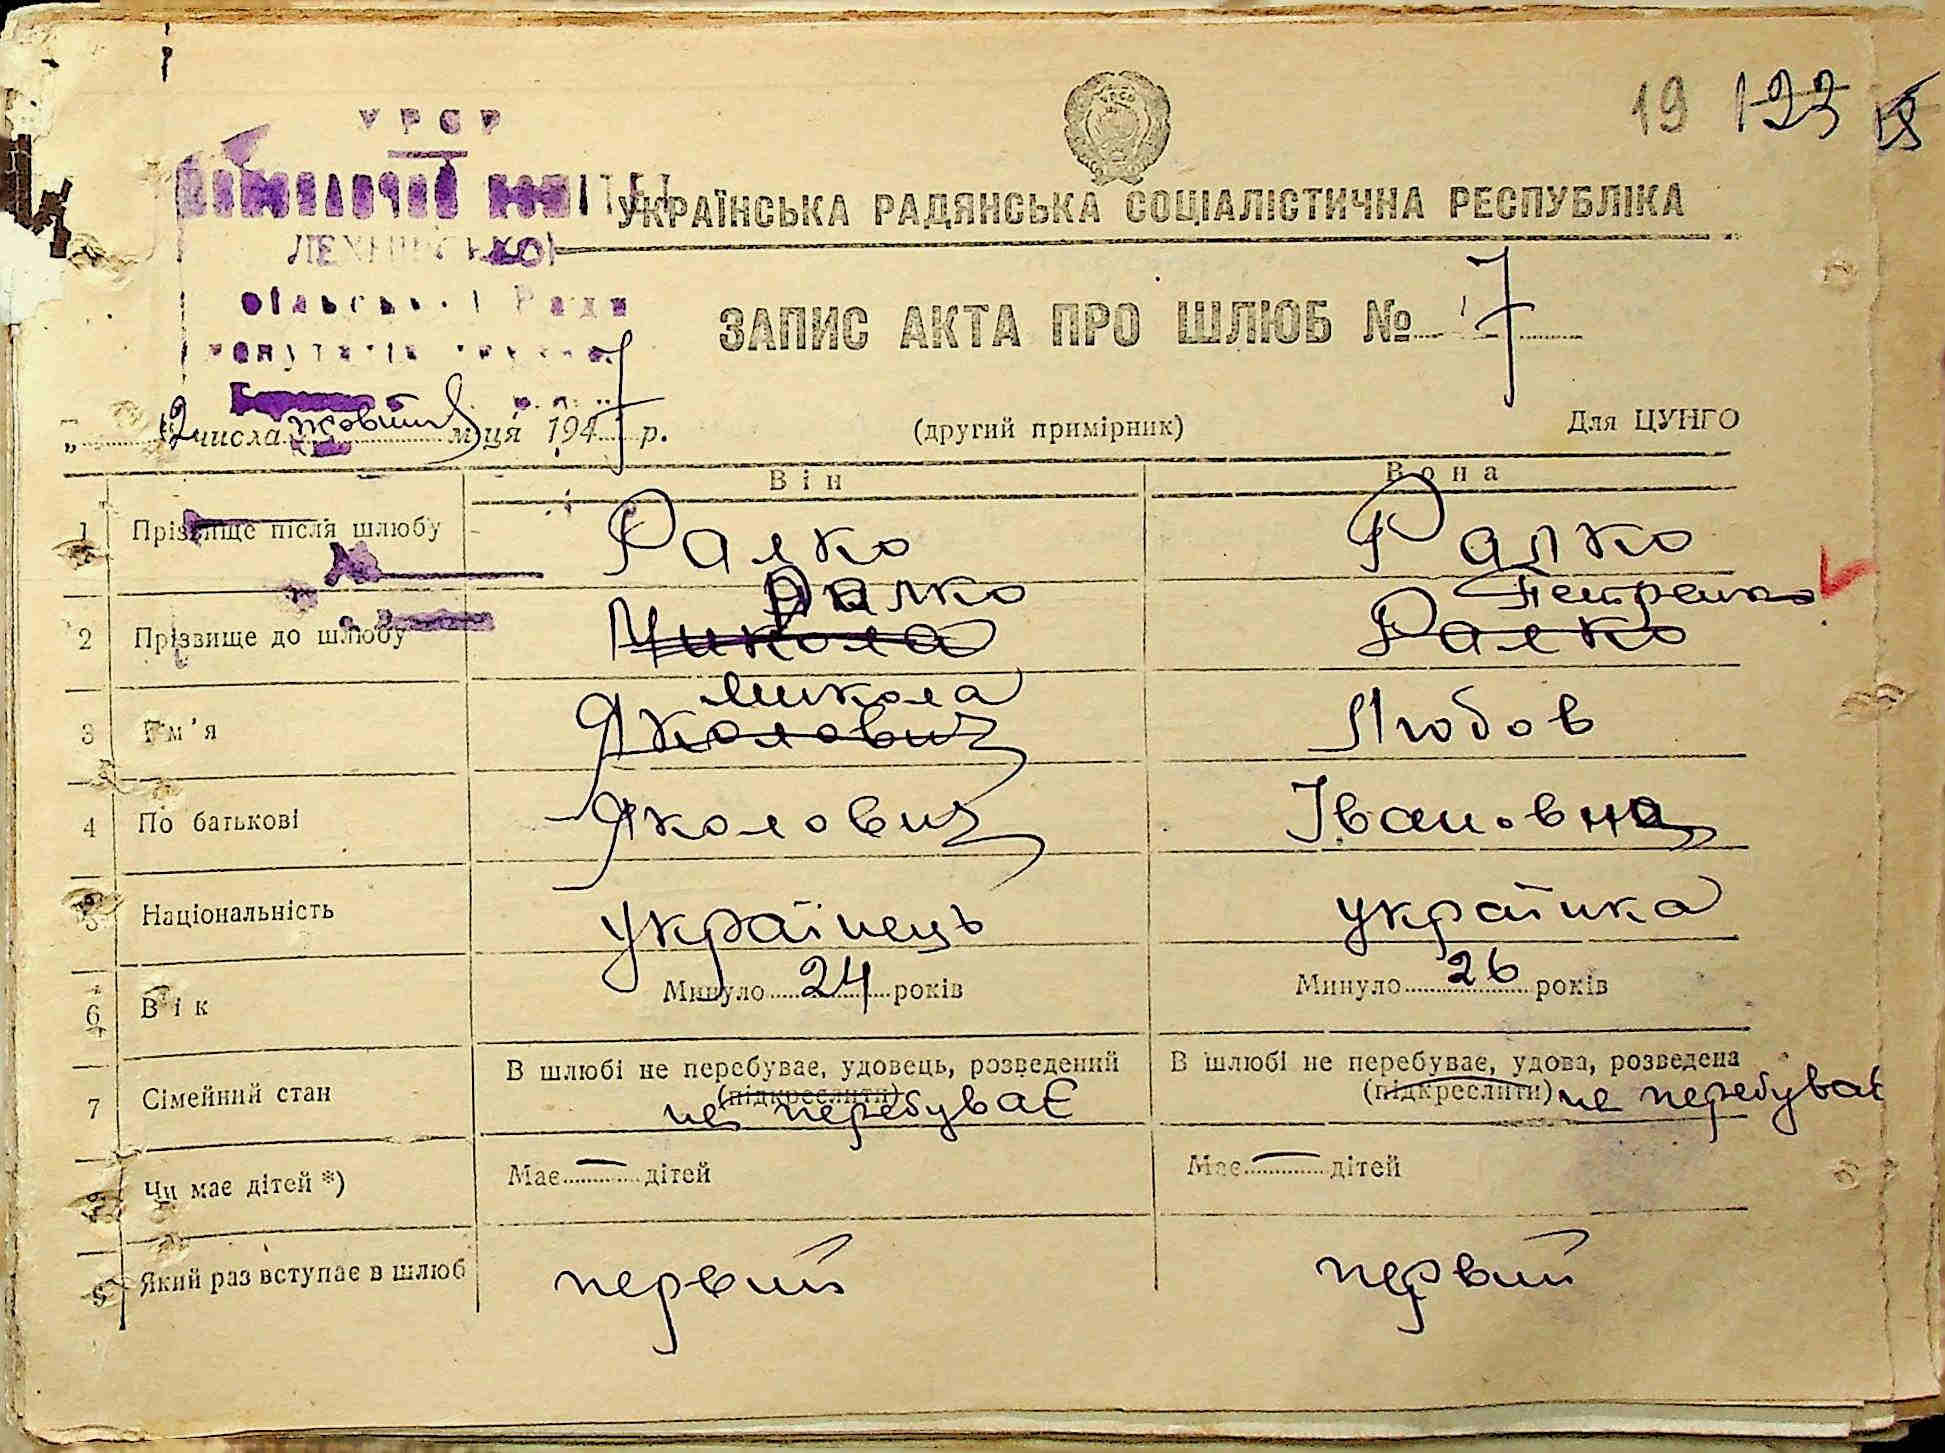 19 123
УРСР
ВИКОНАВЧИЙ КОМІТЕТ
УКРАЇНСЬКА РАДЯНСЬКА СОЦІАЛІСТИЧНА РЕСПУБЛІКА
сільської Ради
ЗАПИС АКТА ПРО ШЛЮБ № 7
„ 12 числа жовтня м-ця 1947 р.
(другий примірник)
Для ЦУНГО
Він Вона
1 Прізвище після шлюбу Ралко Ралко
Ралко Петренко
2 Прізвище до шлюбу Микола Ралко
Микола
3 Ім'я Яколович Любов
4 По батькові Яколович Івановна
5 Національність українець українка
6 Вік Минуло 24 років Минуло 26 років
7 Сімейний стан В шлюбі не перебуває, удовець, розведений В шлюбі не перебуває, удова, розведена
(підкреслити) (підкреслити)
не перебуває не перебуває
8 Чи має дітей *) Має — дітей Має — дітей
9 Який раз вступає в шлюб первий первий